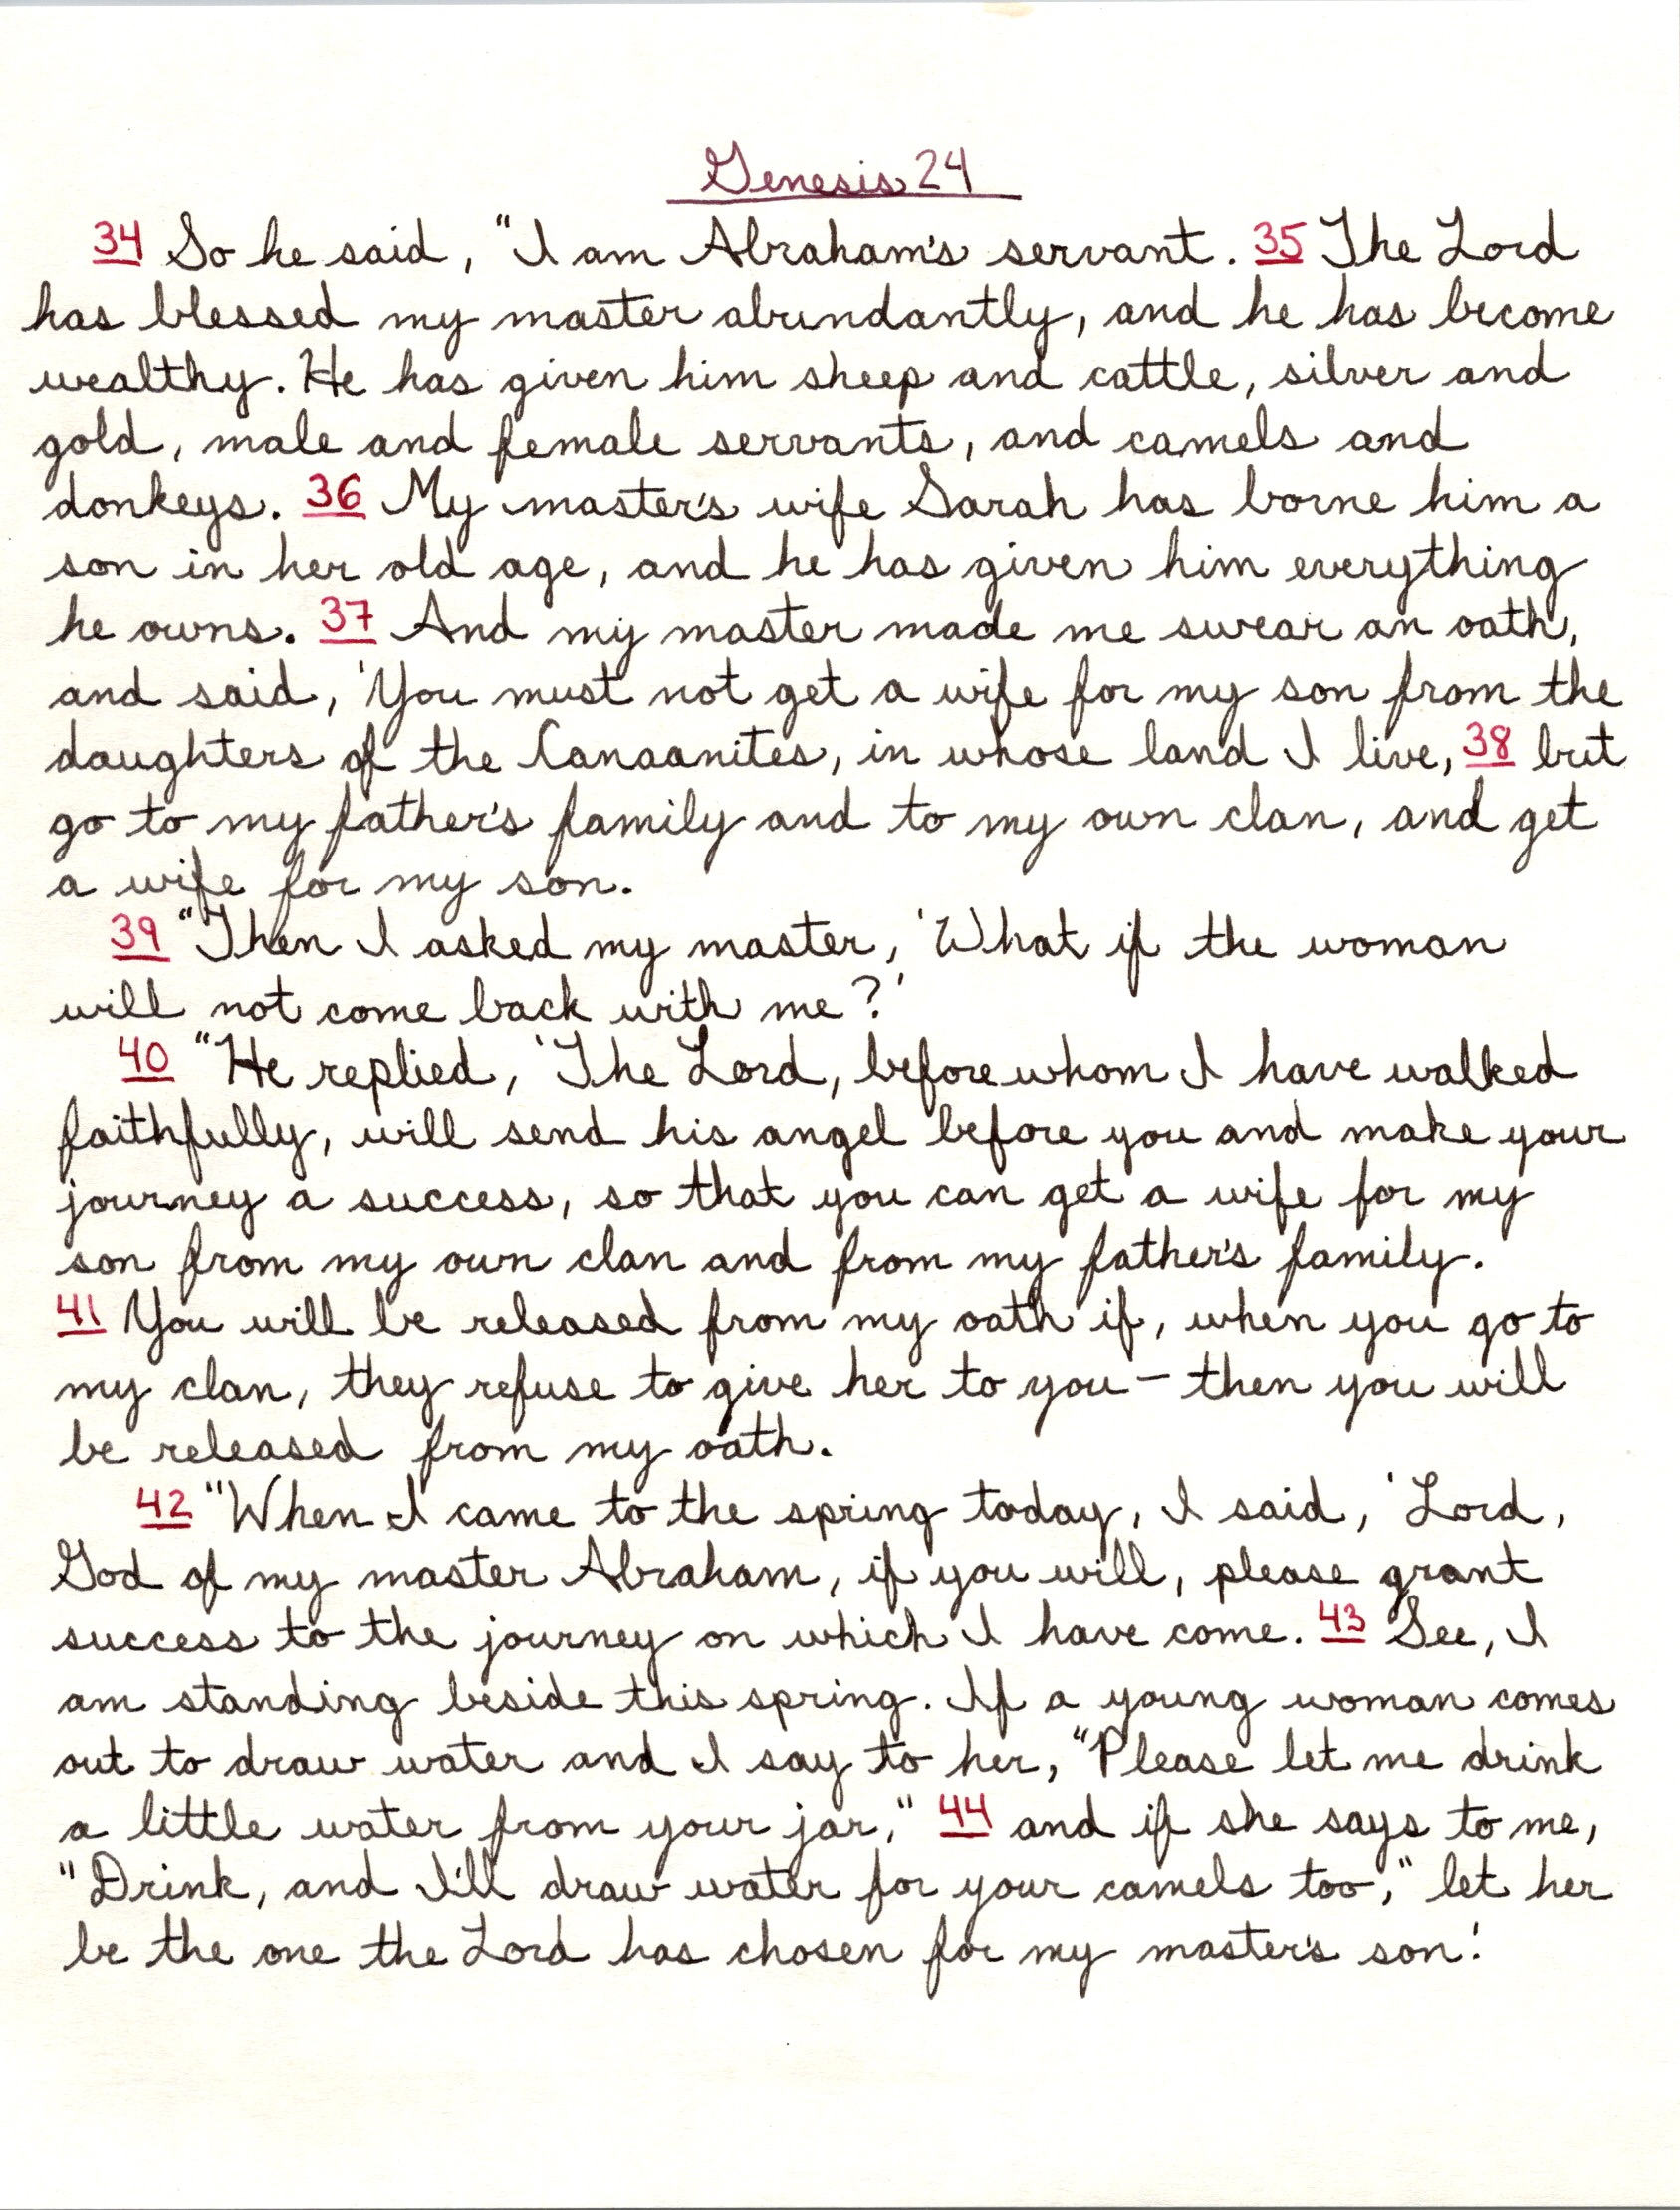 Genesis 24
34 So he said, "I am Abraham's servant. 35 The Lord
has blessed my master abundantly, and he has become
wealthy. He has given him sheep and cattle, silver and
gold, male and female servants, and camels and
donkeys. 36 My master's wife Sarah has borne him a
son in her old age, and he has given him everything
he owns. 37 And my master made me swear an oath,
and said, 'You must not get a wife for my son from the
daughters of the Canaanites, in whose land I live, 38 but
go to my father's family and to my own clan, and get
a wife for my son.
39 "Then I asked my master, 'What if the woman
will not come back with me?'
40 "He replied, 'The Lord, before whom I have walked
faithfully, will send his angel before you and make your
journey a success, so that you can get a wife for my
son from my own clan and from my father's family.
41 You will be released from my oath if, when you go to
my clan, they refuse to give her to you – then you will
be released from my oath.
42 "When I came to the spring today, I said, 'Lord,
God of my master Abraham, if you will, please grant
success to the journey on which I have come. 43 See, I
am standing beside this spring. If a young woman comes
out to draw water and I say to her, "Please let me drink
a little water from your jar," 44 and if she says to me,
"Drink, and I'll draw water for your camels too," let her
be the one the Lord has chosen for my master's son.'